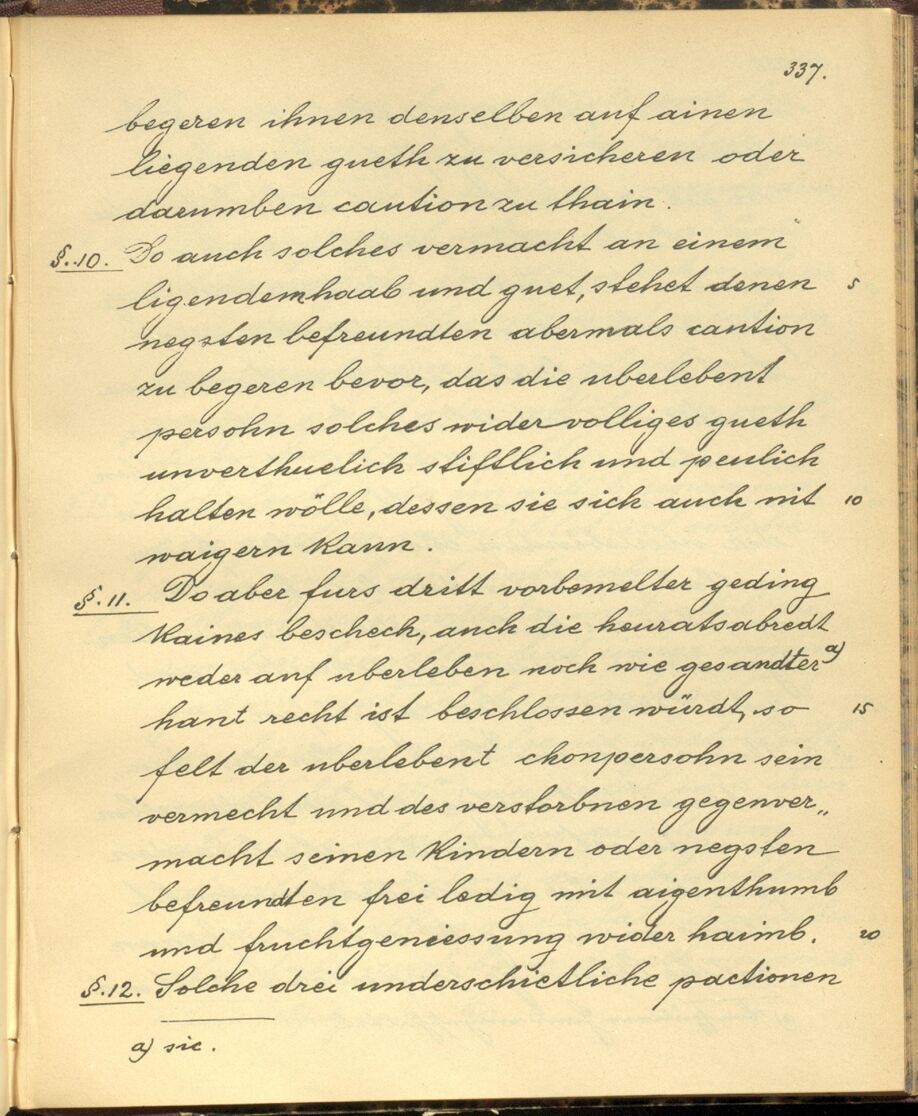 337.
begeren ihnen denselben auf ainen
liegenden gueth zu versicheren oder
darumben caution zu thain.
§. 10. Do auch solches vermacht an einem
ligendemhaab und guet, stehet denen 5
negsten befreundten abermals caution
zu begeren bevor, das die uberlebent
persohn solches wider volliges gueth
unverthuelich stiftlich und peulich
halten wölle, dessen sie sich auch nit 10
waigern kann.
§. 11. Do aber furs dritt vorbemelter geding
kaines beschech, auch die heuratsabredt
weder auf uberleben noch wie gesandter a)
hant recht ist beschlossen würdt, so 15
felt der uberlebent chonpersohn sein
vermecht und des verstorbnen gegenver„
macht seinen kindern oder negsten
befreundten frei ledig mit aigenthumb
und fruchtgeniessung wider haimb. 20
§. 12. Solche drei underschietliche pactionen
a) sic.